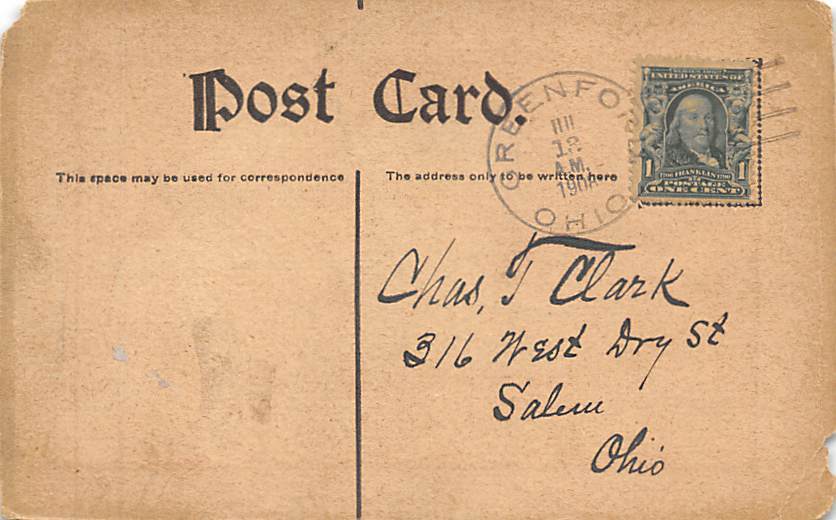 Post Card.
GREENFORD OHIO
12
A.M.
1908
SERIES 1902
UNITED STATES OF
AMERICA
1706 FRANKLIN 1790
1 POSTAGE 1
ONE CENT
This space may be used for correspondence
The address only to be written here
Chas. T Clark
316 West Dry St
Salem
Ohio